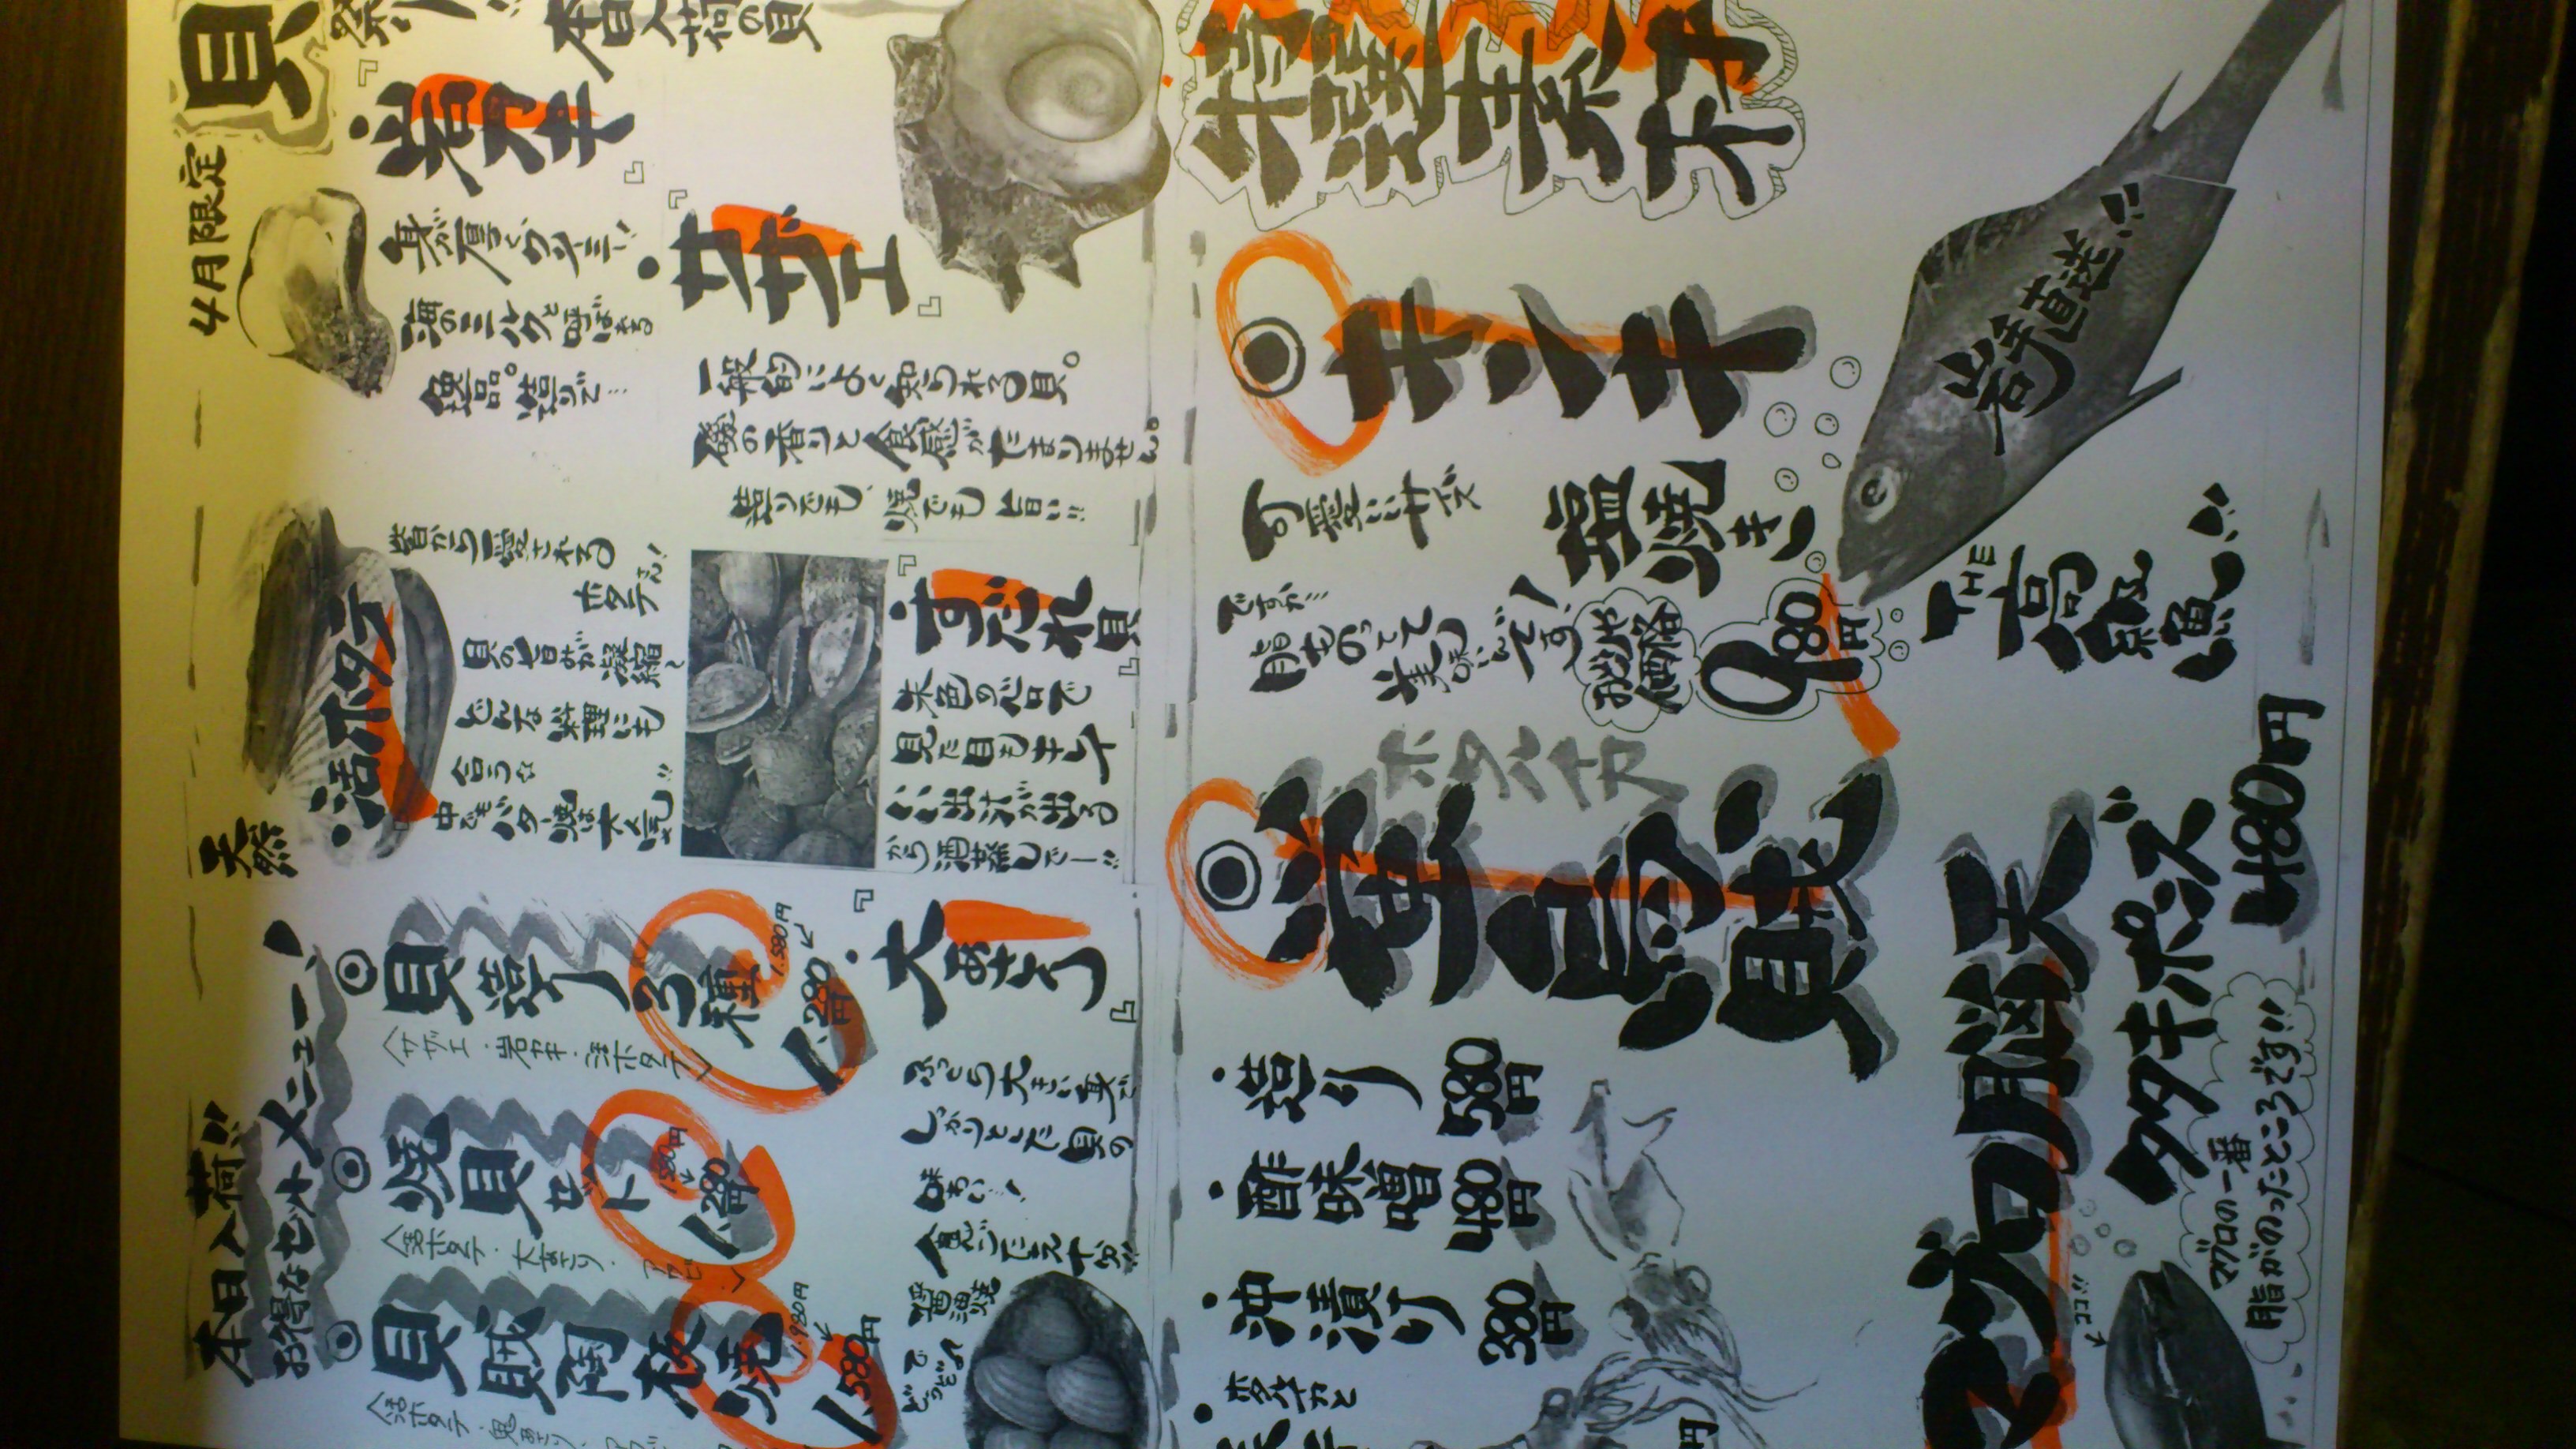 貝祭り!!
本日入荷の貝
4月限定
『岩ガキ』
身が厚くクリーミー
海のミルクと呼ばれる
逸品。造りで…
『サザエ』
一般的によく知られる貝。
磯の香りと食感がたまりません。
造りでも、焼でも旨い!!
天然
活ホタテ
昔から愛される
ホタテさん!
貝の旨みが凝縮
どんな料理にも
合う☆
中でもバター焼は大人気!!
『すだれ貝』
朱色のベロで
見た目もキレイ
いい出汁が出る
から酒蒸しでー!!
『大あさり』
ふっくら大きい身で
しっかりとした貝の
味わい…!
食べごたえ十分!!
醤油焼
でどうぞ
本日入荷!!
お得なセットメニュー!
◎貝造り3種
〈サザエ・岩ガキ・活ホタテ〉
1.580円
1.280円
◎焼貝セット
〈活ホタテ・大あさり・
1.580円
1.280円
◎貝賊陶板焼
1.980円
1.580円
特選素材
◎キンキ
可愛いサイズ
ですが…
脂ものってて
美味いんです!
塩焼き
おためし価格
980円
岩手直送!!
THE
高級魚!!
ホタルイカ
◎蛍烏賊
・造り 580円
・酢味噌 480円
・沖漬け 380円
・ホタルイカと
円
マグロ脳天
タタキポン酢
480円
マグロの一番
脂がのったところです!!
ココ!!